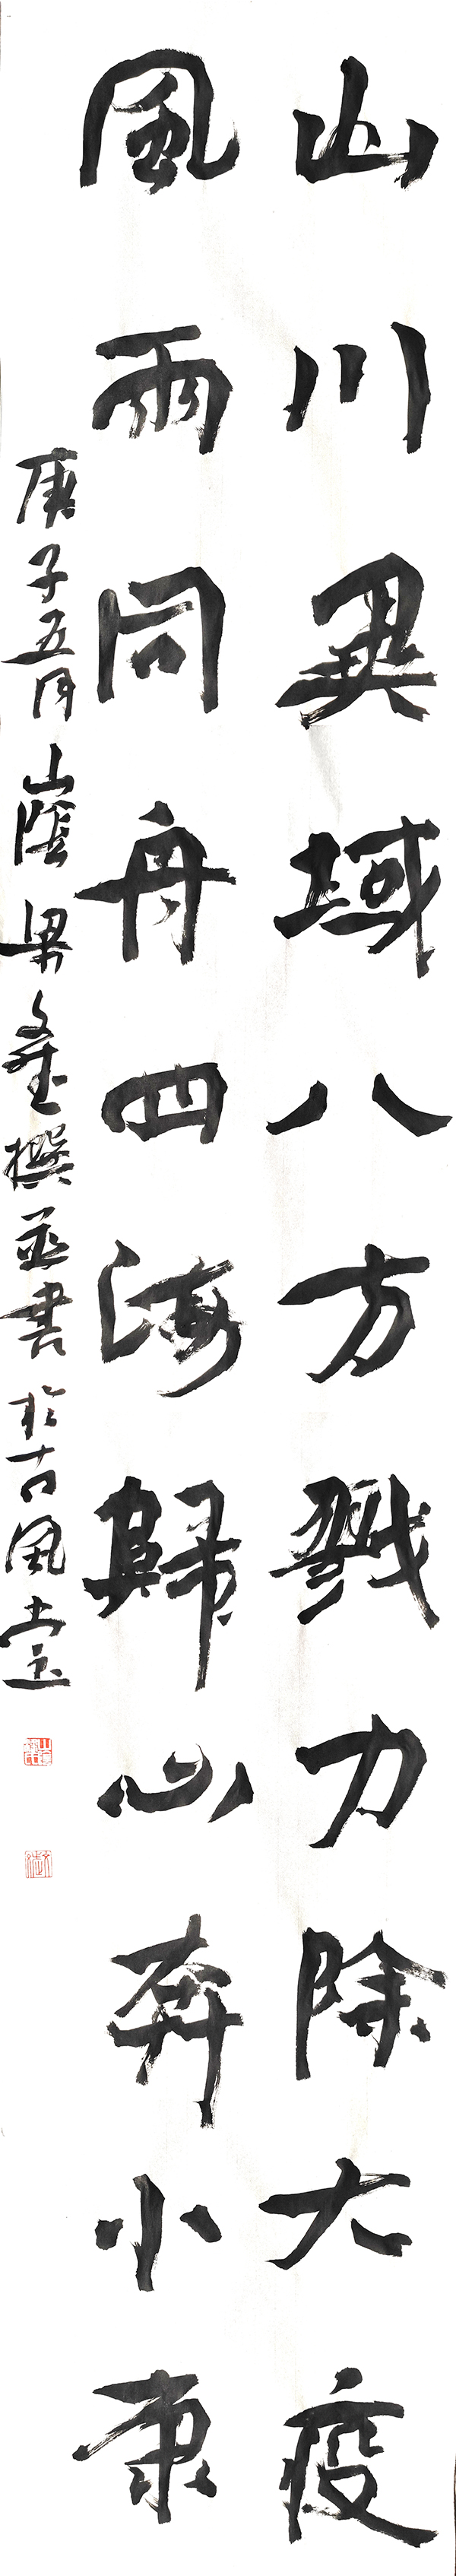 山川異域八方戮力除大疫
風雨同舟四海歸心奔小康
庚子五月山陰梁文斌撰並書於古風堂